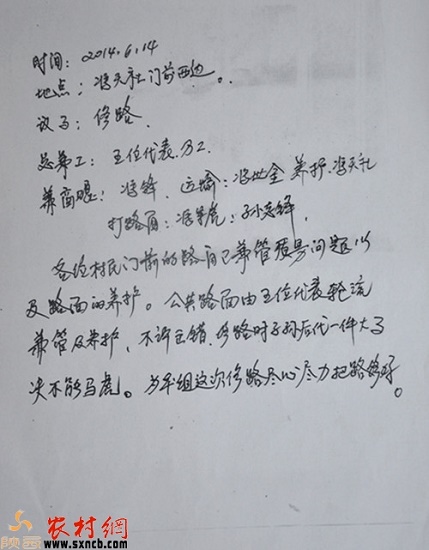 时间：2014.6.14
地点：冯天社门前西边。
议子：修路.
总弟工：五位代表.分工.
弟商眼：冯锋、运输：冯世全 养护.冯天礼
打路面：冯生虎；孙志铎.
各给村民门前的路自己兼管质号问题以
及路面的养护。公共路面由五位代表轮流
兼管及养护，不许出错.修路时子孙后代一件大子
决不能马虎。为平组这次修路尽心尽力把路修好。
陕西
农村網
www.sxncb.com